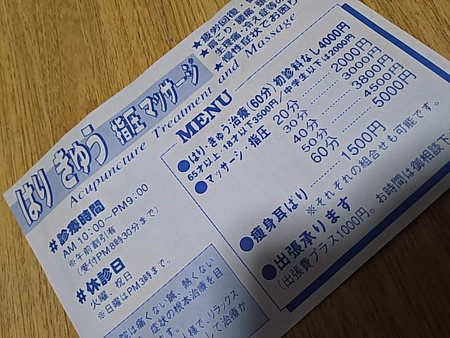 はり きゅう 指圧 マッサージ
Acupuncture Treatment and Massage
★疲労回復
★肩こり、腰痛、
★生理痛、冷え症等
★慢性症状でお困り
MENU
●はり・きゅう治療(60分)初診料なし4000円
65才以上・18才以下3500円/中学生以下は2000円
●マッサージ・指圧
20分 2000円
30分 3000円
40分 3800円
50分 4500円
60分 5000円
●痩身耳ばり 1500円
※それぞれの組合せも可能です。
●出張承ります
(出張費プラス1000円。お時間は御相談下
#診療時間
AM10:00〜PM9:00
※午前割引有
(受付PM8時30分まで)
#休診日
火曜 祝日
※日曜はPM3時まで。
院は痛くない鍼、熱くない
症状の根本治療を目
人様で、リラックス
して治療が